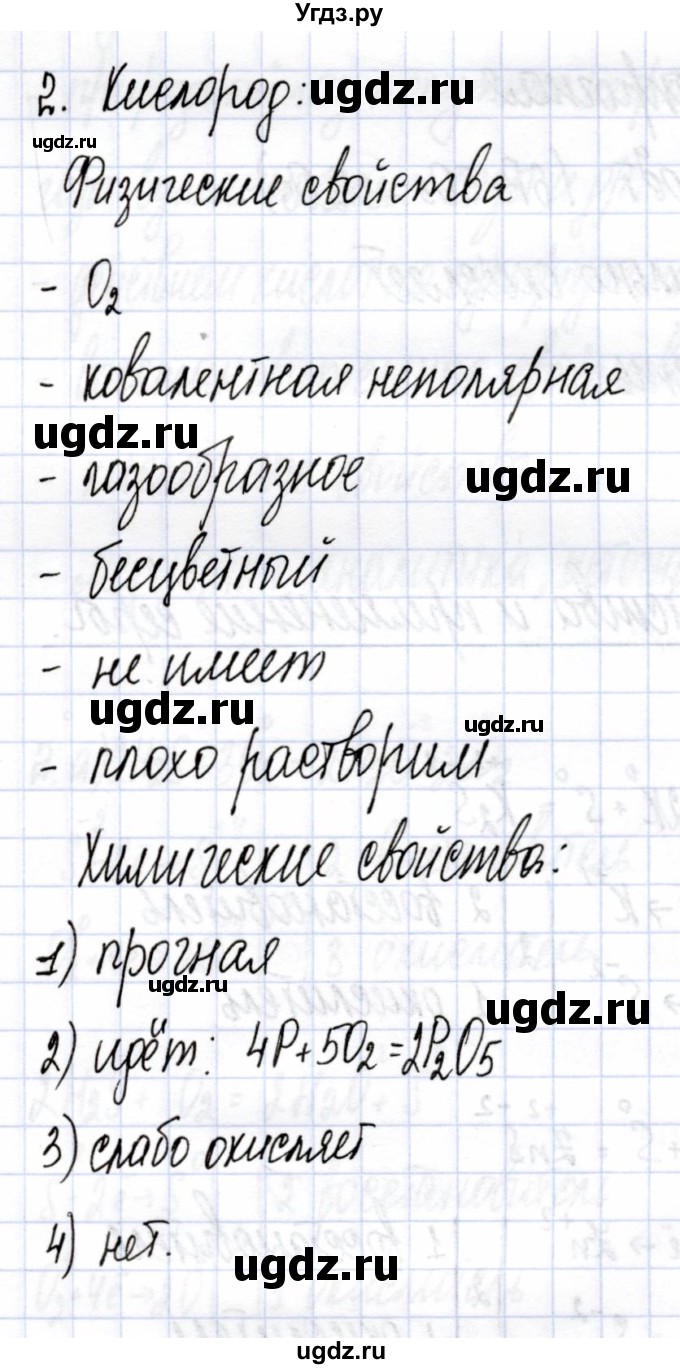 Угдз.ру
2. Кислород: ugdz.ru
ugdz.ru
Физические свойства
- O₂
- ковалентная неполярная
ugdz.ru
- газообразное ugdz.ru
- бесцветный
- не имеет
ugdz.ru ugdz.ru
- плохо растворим
Химические свойства:
1) прочная
ugdz.ru ugdz.ru
2) идёт: 4P+5O₂=2P₂O₅
3) слабо окисляет
4) нет.
ugdz.ru
ugdz.ru